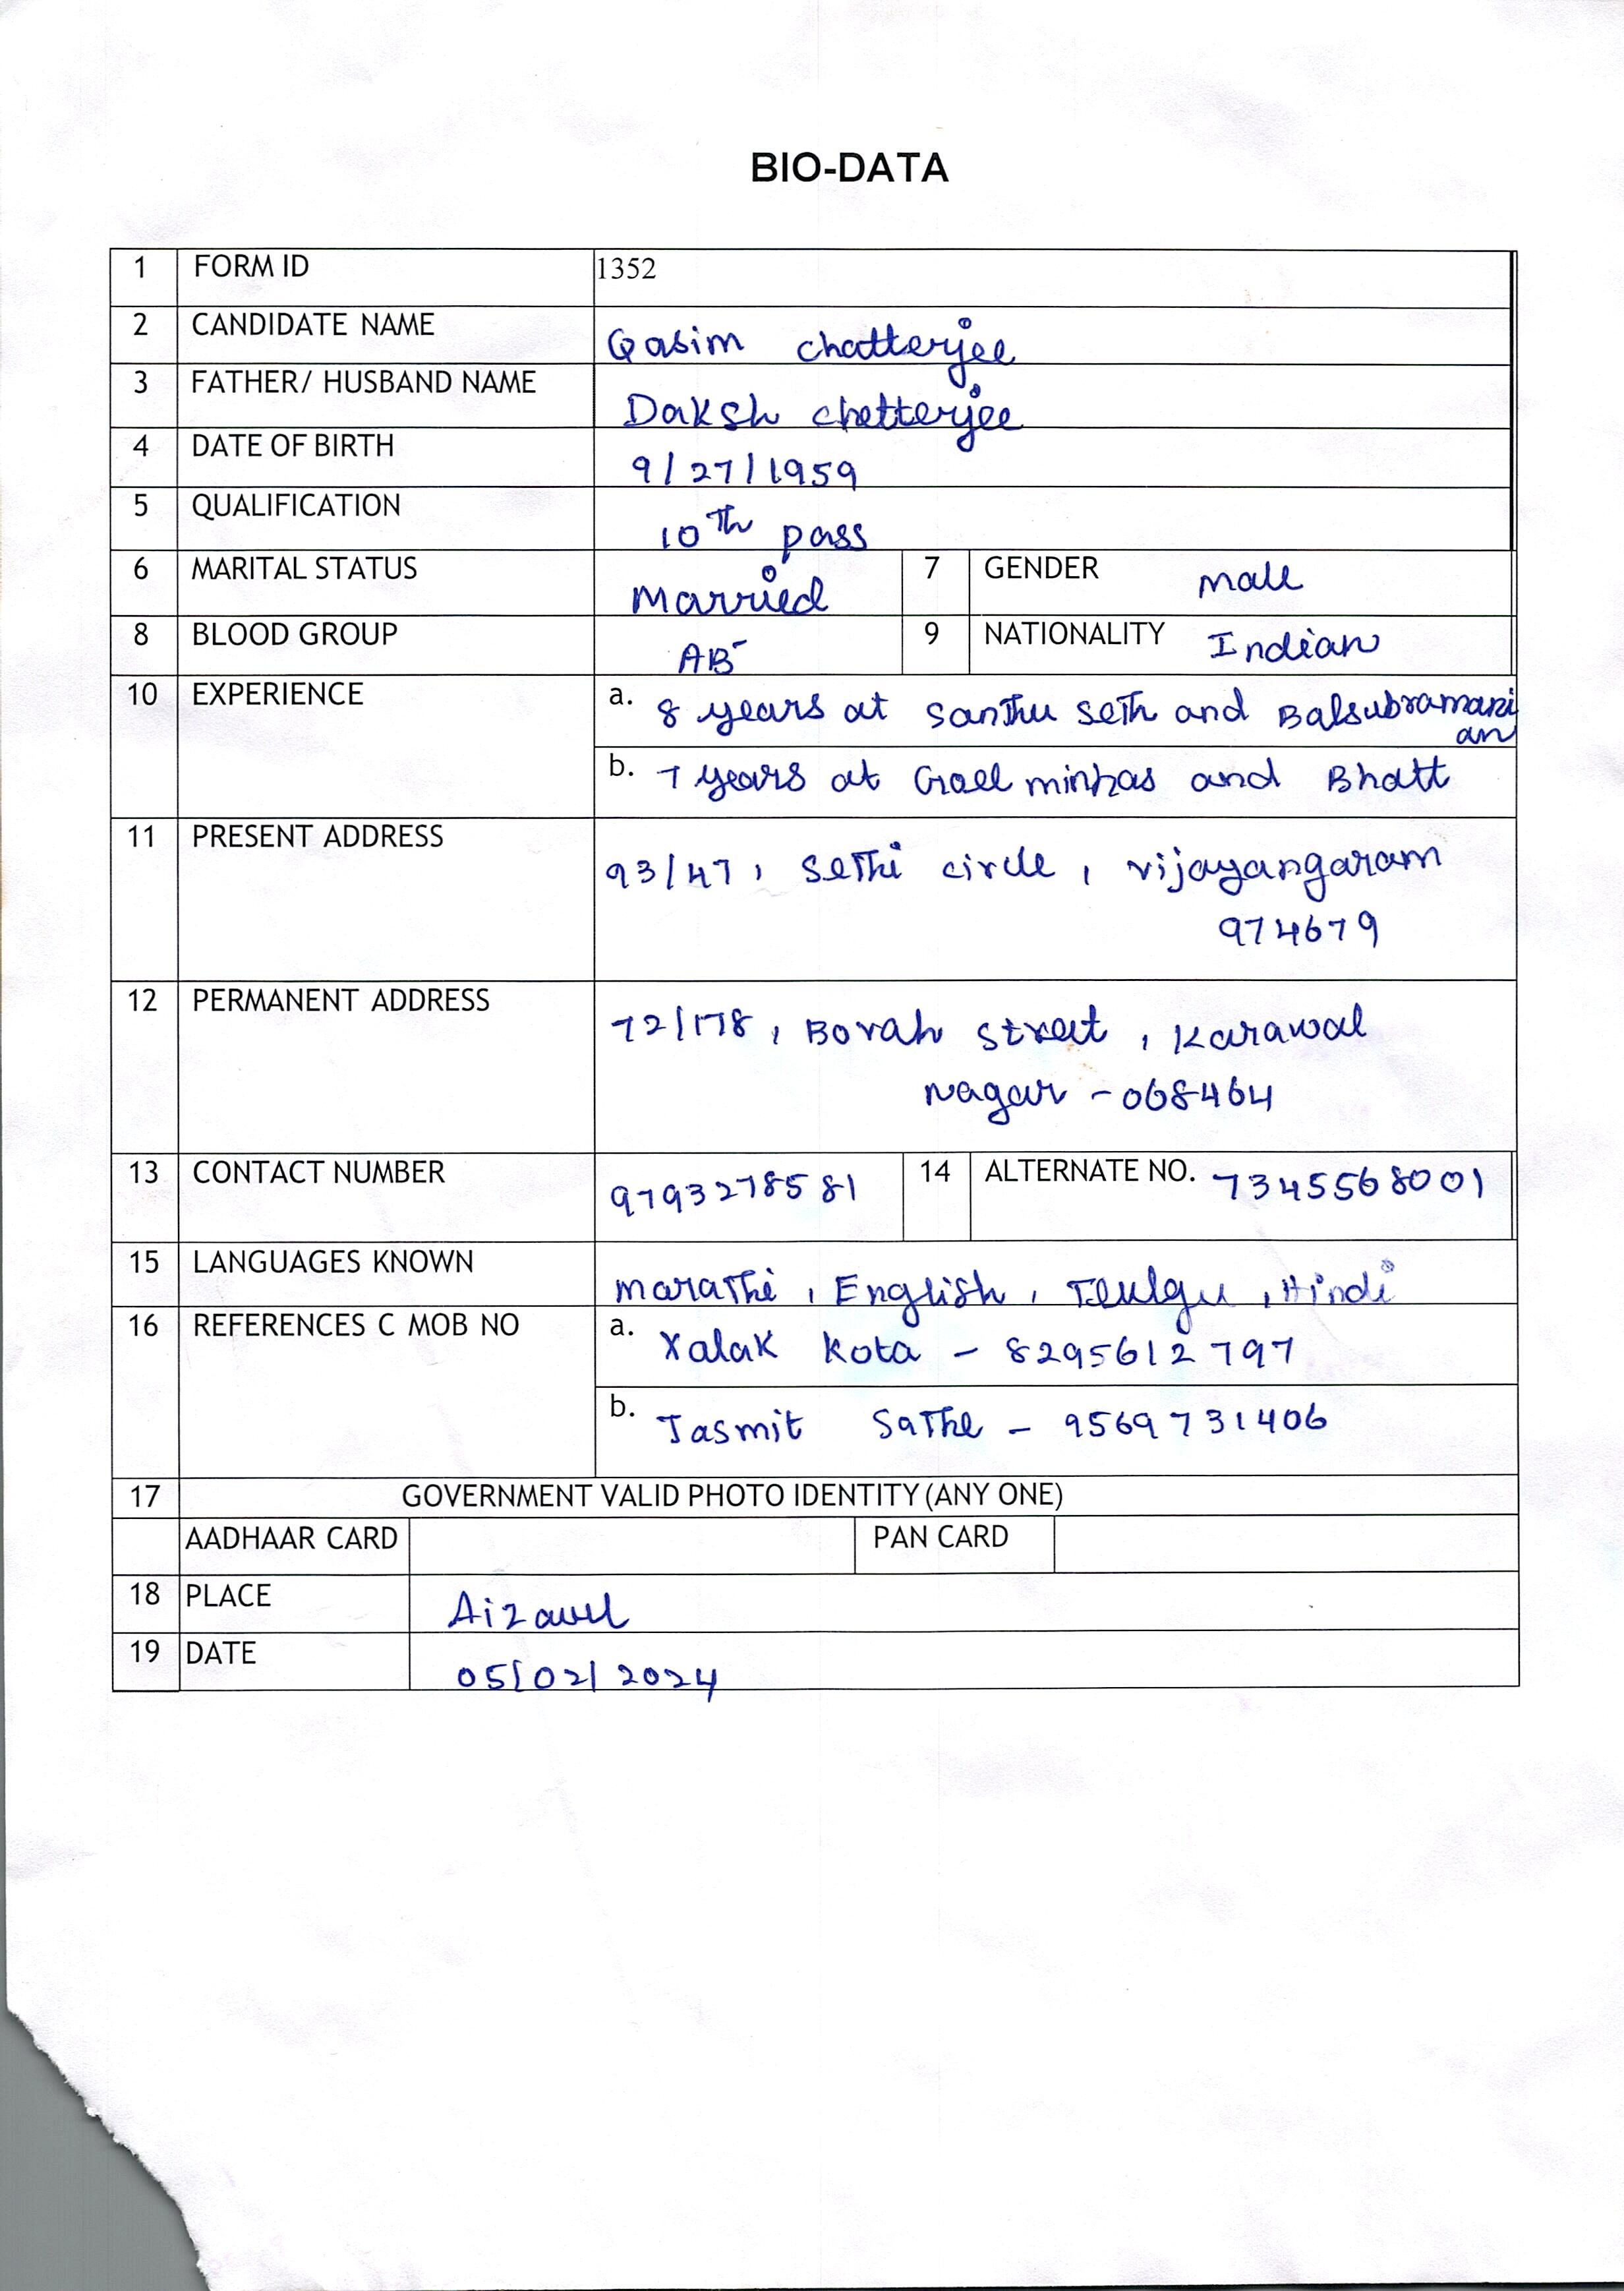 BIO-DATA
1 FORM ID 1352
2 CANDIDATE NAME Qasim Chatterjee
3 FATHER/ HUSBAND NAME Daksh Chetterjee
4 DATE OF BIRTH 9/27/1959
5 QUALIFICATION 10Th pass
6 MARITAL STATUS Married 7 GENDER male
8 BLOOD GROUP AB- 9 NATIONALITY Indian
10 EXPERIENCE a. 8 years at Santhu Seth and Balsubramani
an
b. 7 years at Gael minhas and Bhatt
11 PRESENT ADDRESS 93/47, Sethi circle, vijayangaram
974679
12 PERMANENT ADDRESS 72/178, Borah Street, Karawal
Nagar - 068464
13 CONTACT NUMBER 9793278581 14 ALTERNATE NO. 7345568001
15 LANGUAGES KNOWN Marathi, English, Teulgu, Hindi
16 REFERENCES C MOB NO a. Xalak Kota - 8295612797
b. Jasmit Sathe - 9569731406
17 GOVERNMENT VALID PHOTO IDENTITY (ANY ONE)
AADHAAR CARD PAN CARD
18 PLACE Aizawl
19 DATE 05/02/2024